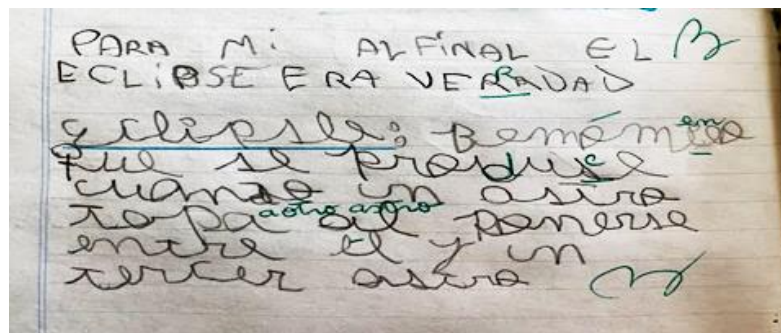 PARA Mi AL FiNAL EL
ECLiPSE ERA VERRDAD
eclipsle: Femómeno
que se produse
cuando un astro
topa a otro astro al ponerse
entre él y un
tercer astro